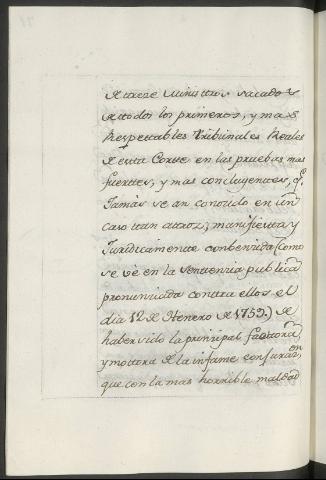 de trece Ministros sacados
de todos los primeros, y mas
Respettables tribunales Reales
de esta Corte en las pruebas mas
fuertes, y mas concluyentes, qe.
Jamàs se an conocido en un
caso tan atroz; manifiesta y
Juridicamente conbencida (como
se vé en la Sentencia publica
pronunciada contra ellos el
dia 12 de Henero de 1759) de
haber sido la prinzipal factora,
y motora de la infame conjuracion
que con la mas horrible maldad